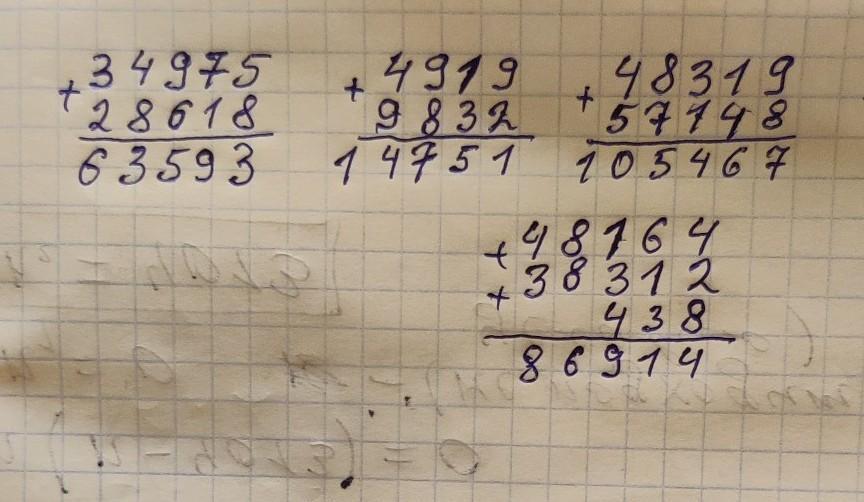 + 34975
28618
63593
+ 4919
9832
14751
+ 48319
57148
105467
+ 48164
+ 38312
438
86914